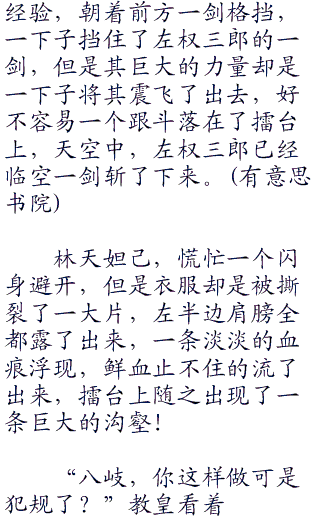 经验，朝着前方一剑格挡，
一下子挡住了左权三郎的一
剑，但是其巨大的力量却是
一下子将其震飞了出去，好
不容易一个跟斗落在了擂台
上，天空中，左权三郎已经
临空一剑斩了下来。(有意思
书院)
林天妲己，慌忙一个闪
身避开，但是衣服却是被撕
裂了一大片，左半边肩膀全
都露了出来，一条淡淡的血
痕浮现，鲜血止不住的流了
出来，擂台上随之出现了一
条巨大的沟壑！
“八岐，你这样做可是
犯规了？”教皇看着